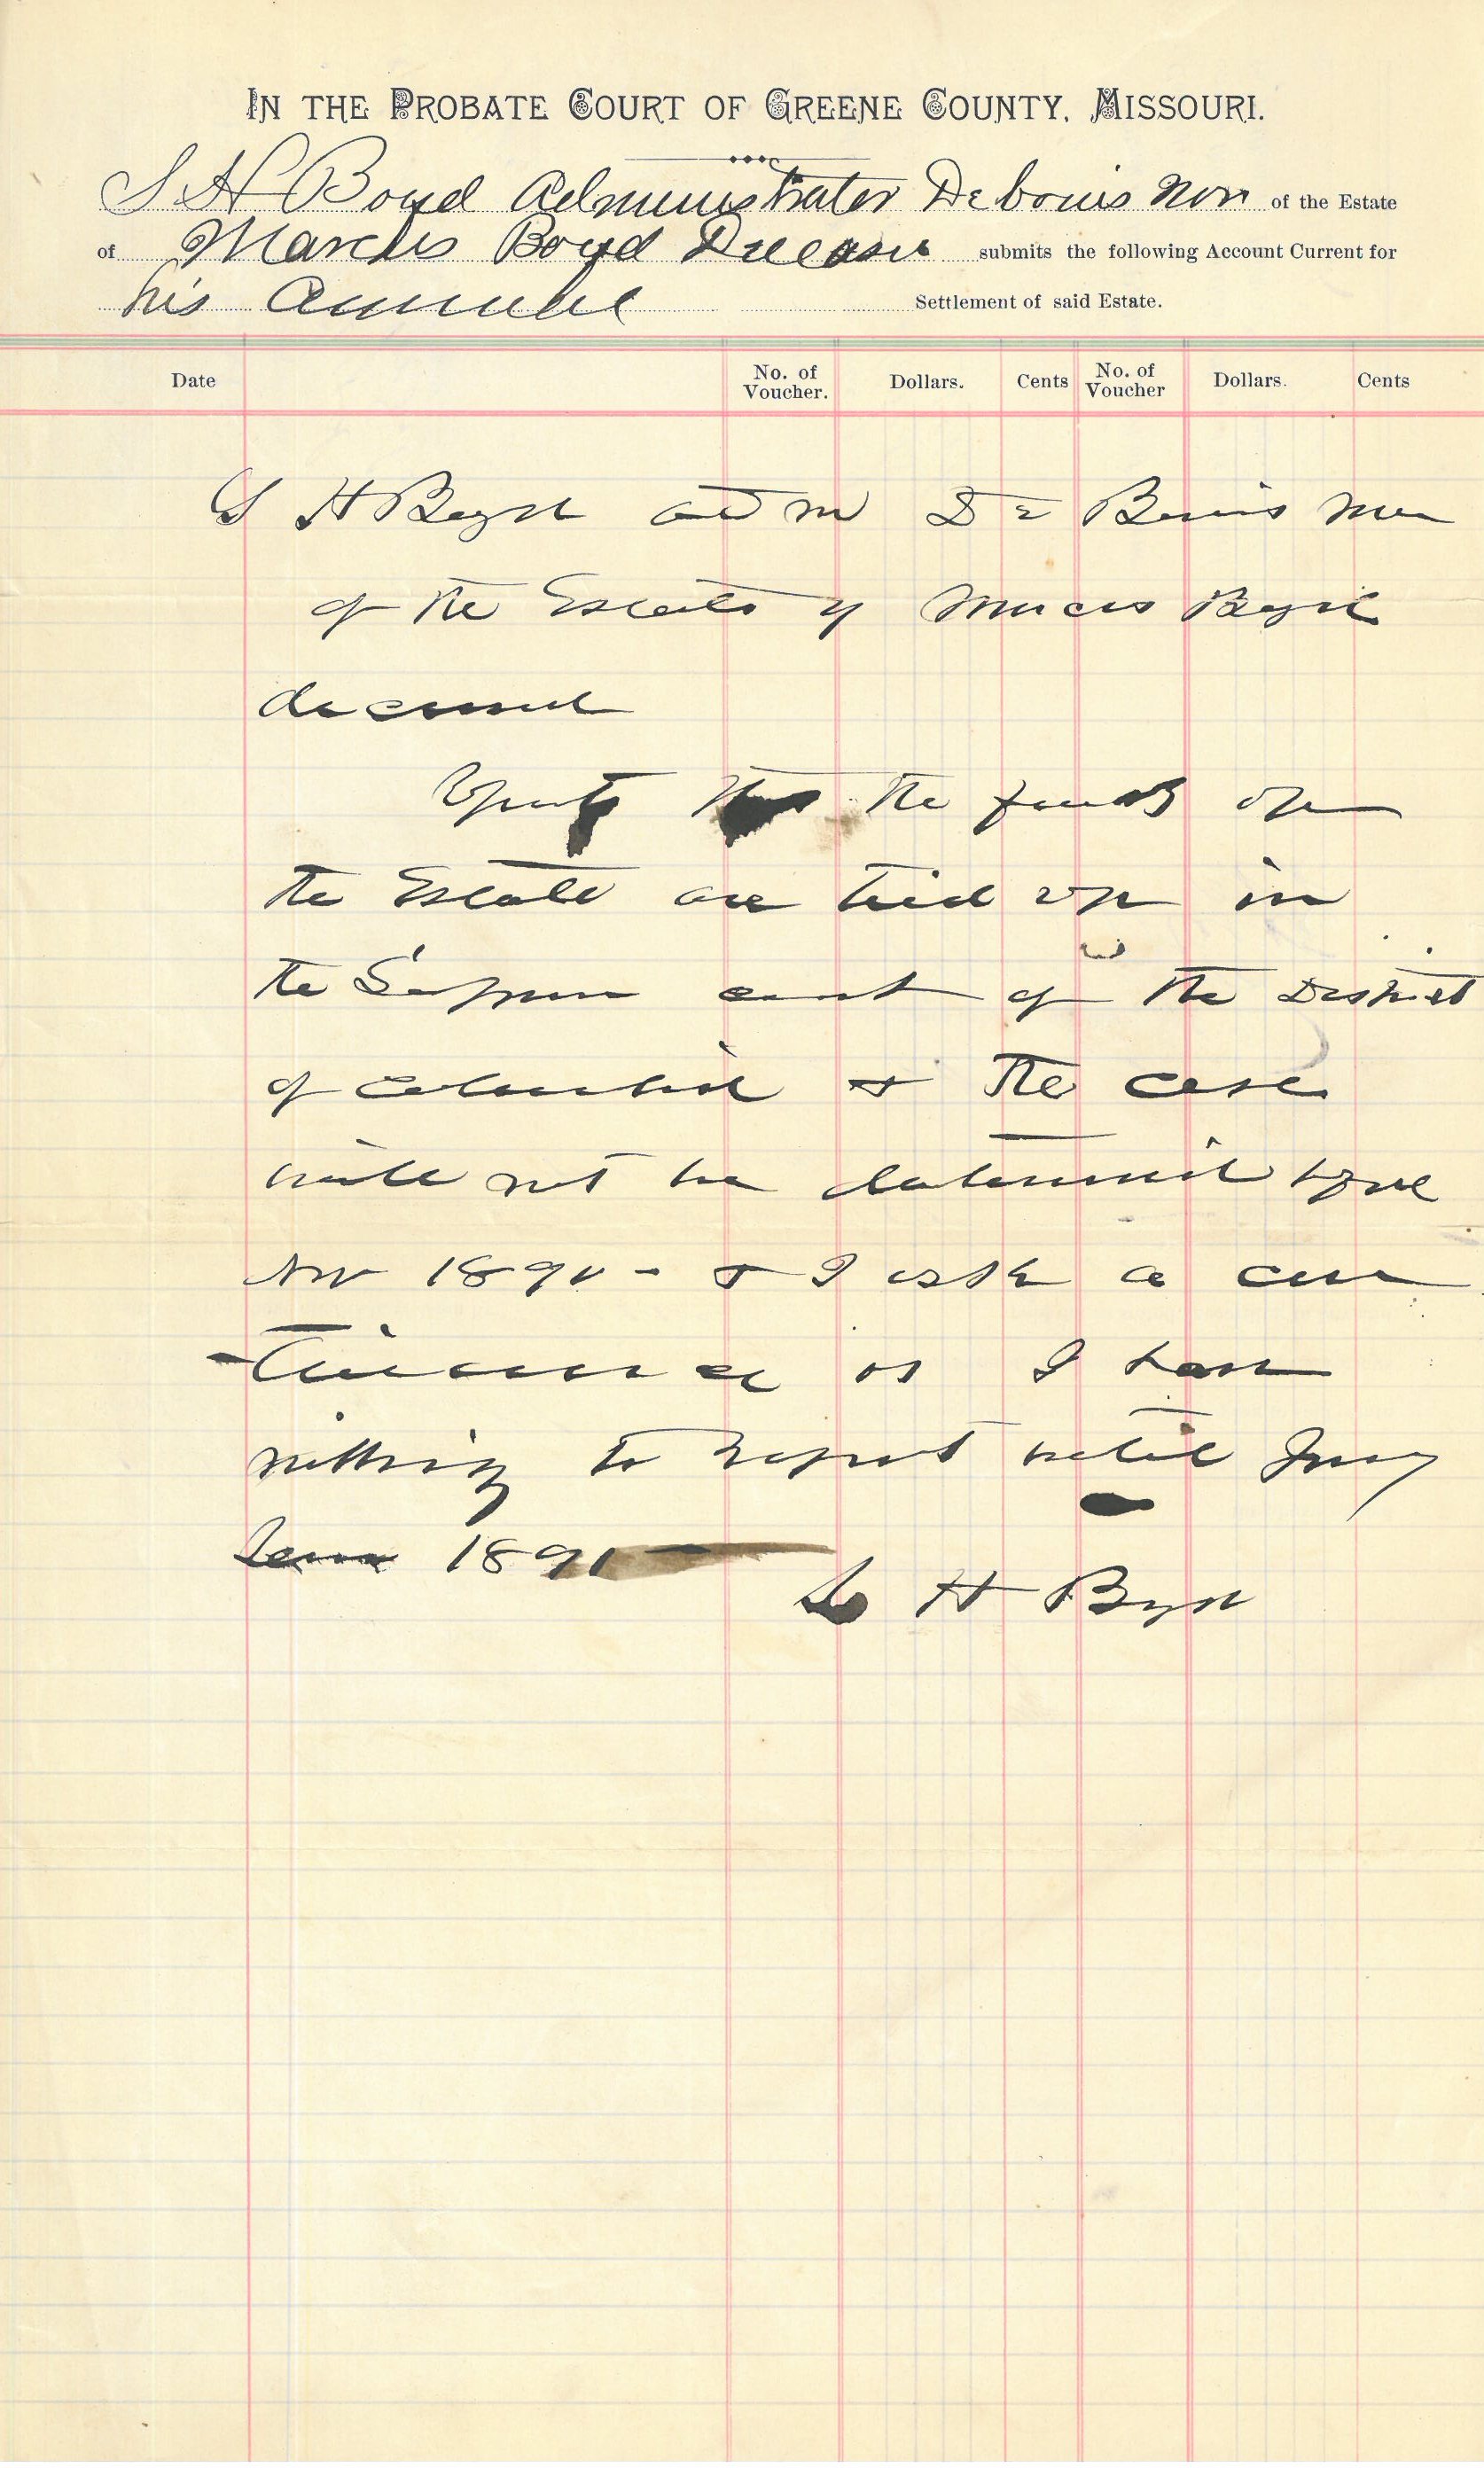 IN THE PROBATE COURT OF GREENE COUNTY, MISSOURI.
S H Boyd Administrator De bonis Non of the Estate
of Marcus Boyd Deceased submits the following Account Current for
his Annual Settlement of said Estate.
Date No. of Voucher. Dollars. Cents No. of Voucher Dollars. Cents
S H Boyd adm De Bonis Non
of the Estate of Marcus Boyd
deceased
reports that the funds of
the Estate are tied up in
the Supreme court of the District
of Columbia & the case
will not be determined before
Nov 1890 - & I ask a con
tinuance as I have
nothing to report until Jany
Term 1891
S H Boyd